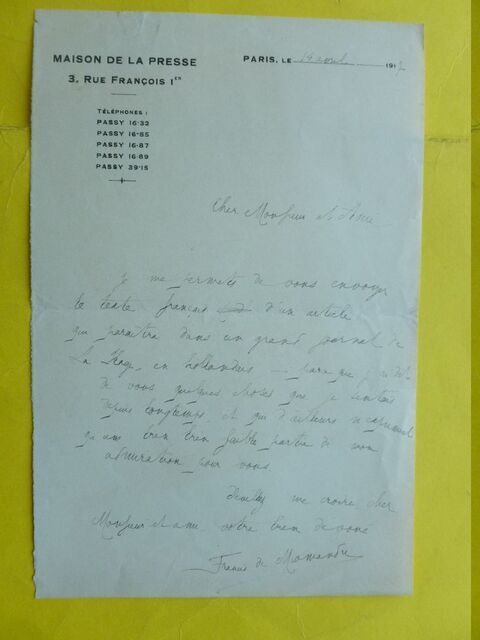 MAISON DE LA PRESSE
3, RUE FRANÇOIS Ier
TÉLÉPHONES :
PASSY 16-32
PASSY 16-85
PASSY 16-87
PASSY 16-89
PASSY 39-15
PARIS, LE 14 avril 1917
Cher Monsieur et Ami
Je me permets de vous envoyer
le texte français d'un article
qui paraîtra dans un grand journal de
La Haye, en hollandais — parce que j'y dis
de vous quelques choses que je sentais
depuis longtemps, et qui d'ailleurs n'expriment
qu'une bien bien faible partie de mon
admiration pour vous.
Veuillez me croire cher
Monsieur et ami votre bien dévoué
Francis de Miomandre